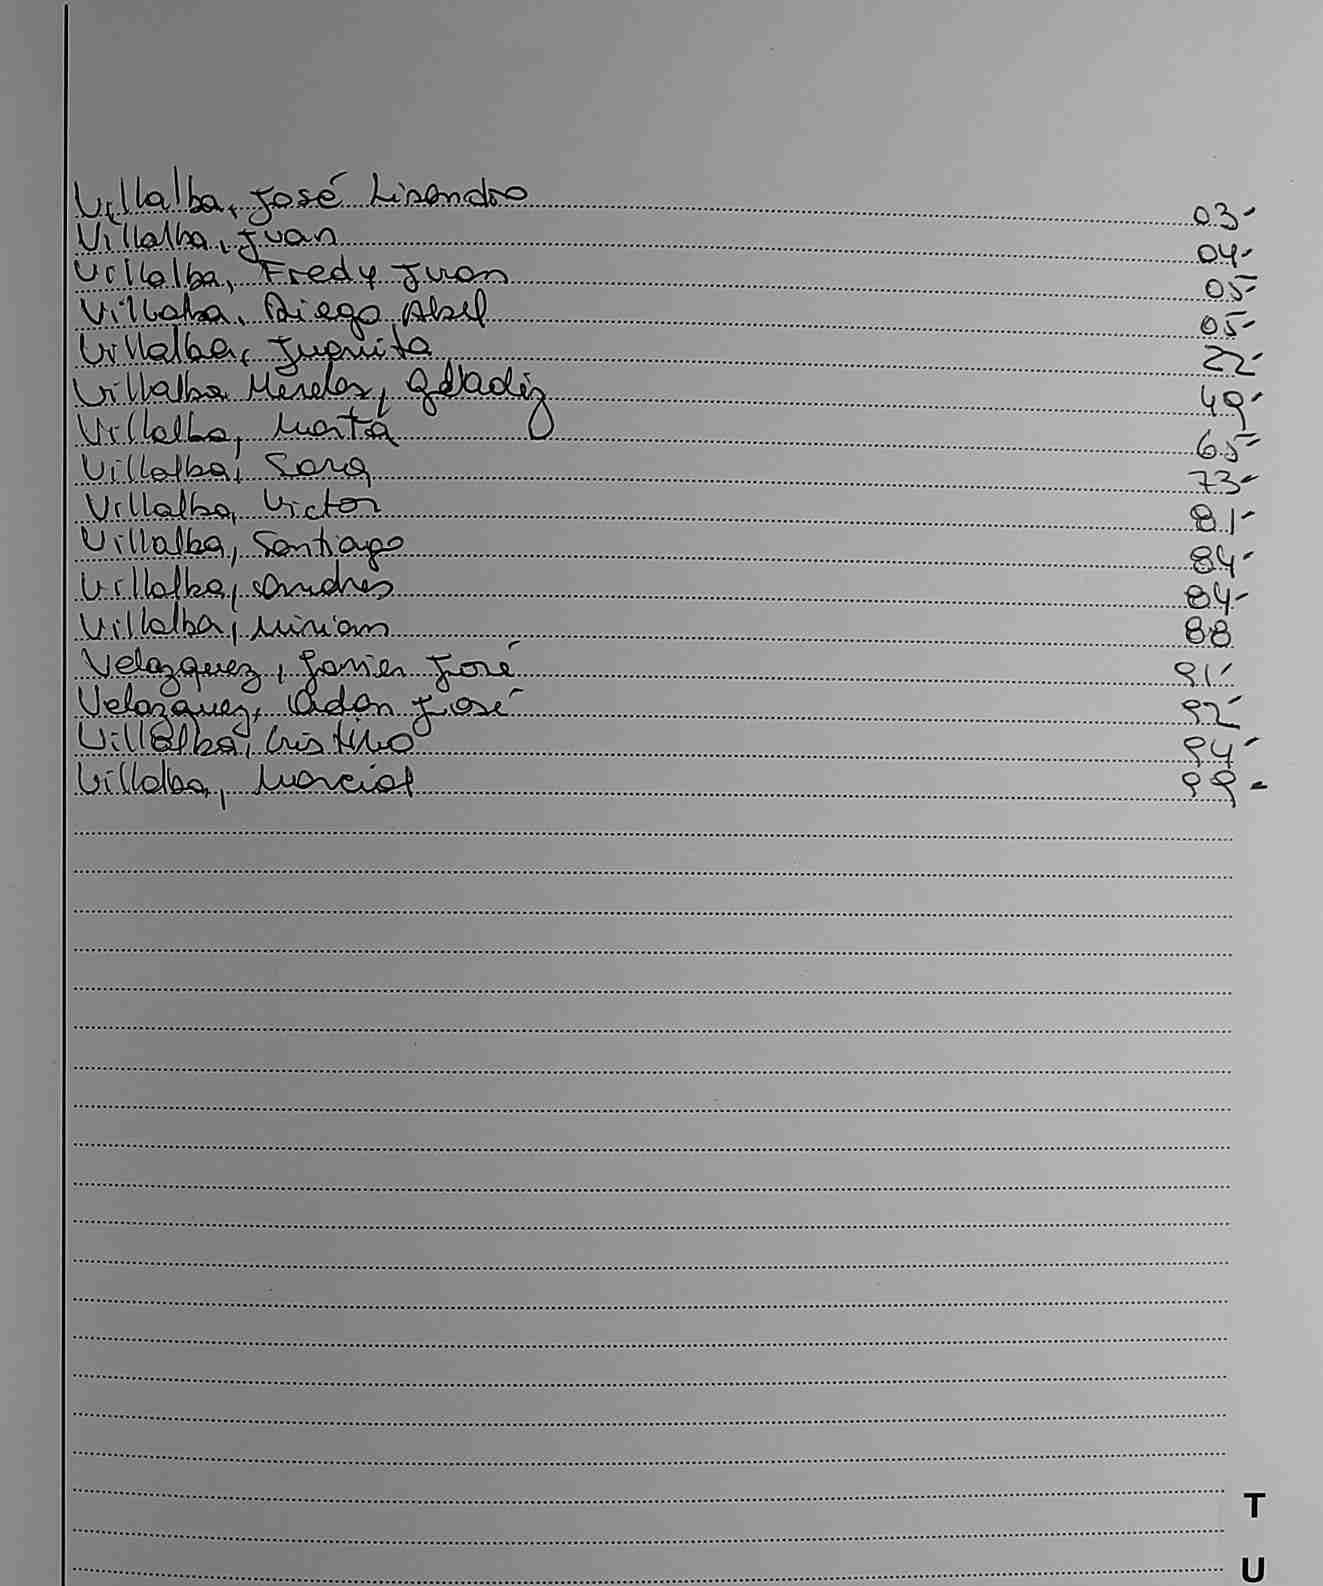 Villalba, José Lisandro 03-
Villalba, Juan 04-
Villalba, Fredy Juan 05-
Villalba, Diego Abel 05-
Villalba, Juanita 22-
Villalba Mereles, 49-
Villalba, Marta 65-
Villalba, Sara 73-
Villalba, Victor 81-
Villalba, Santiago 84-
Villalba, Andres 84-
Villalba, Miriam 88
Velazquez, Javier José 91-
Velazquez, Adan José 92-
Villalba, Cristino 94-
Villalba, Marcial 99-
T
U